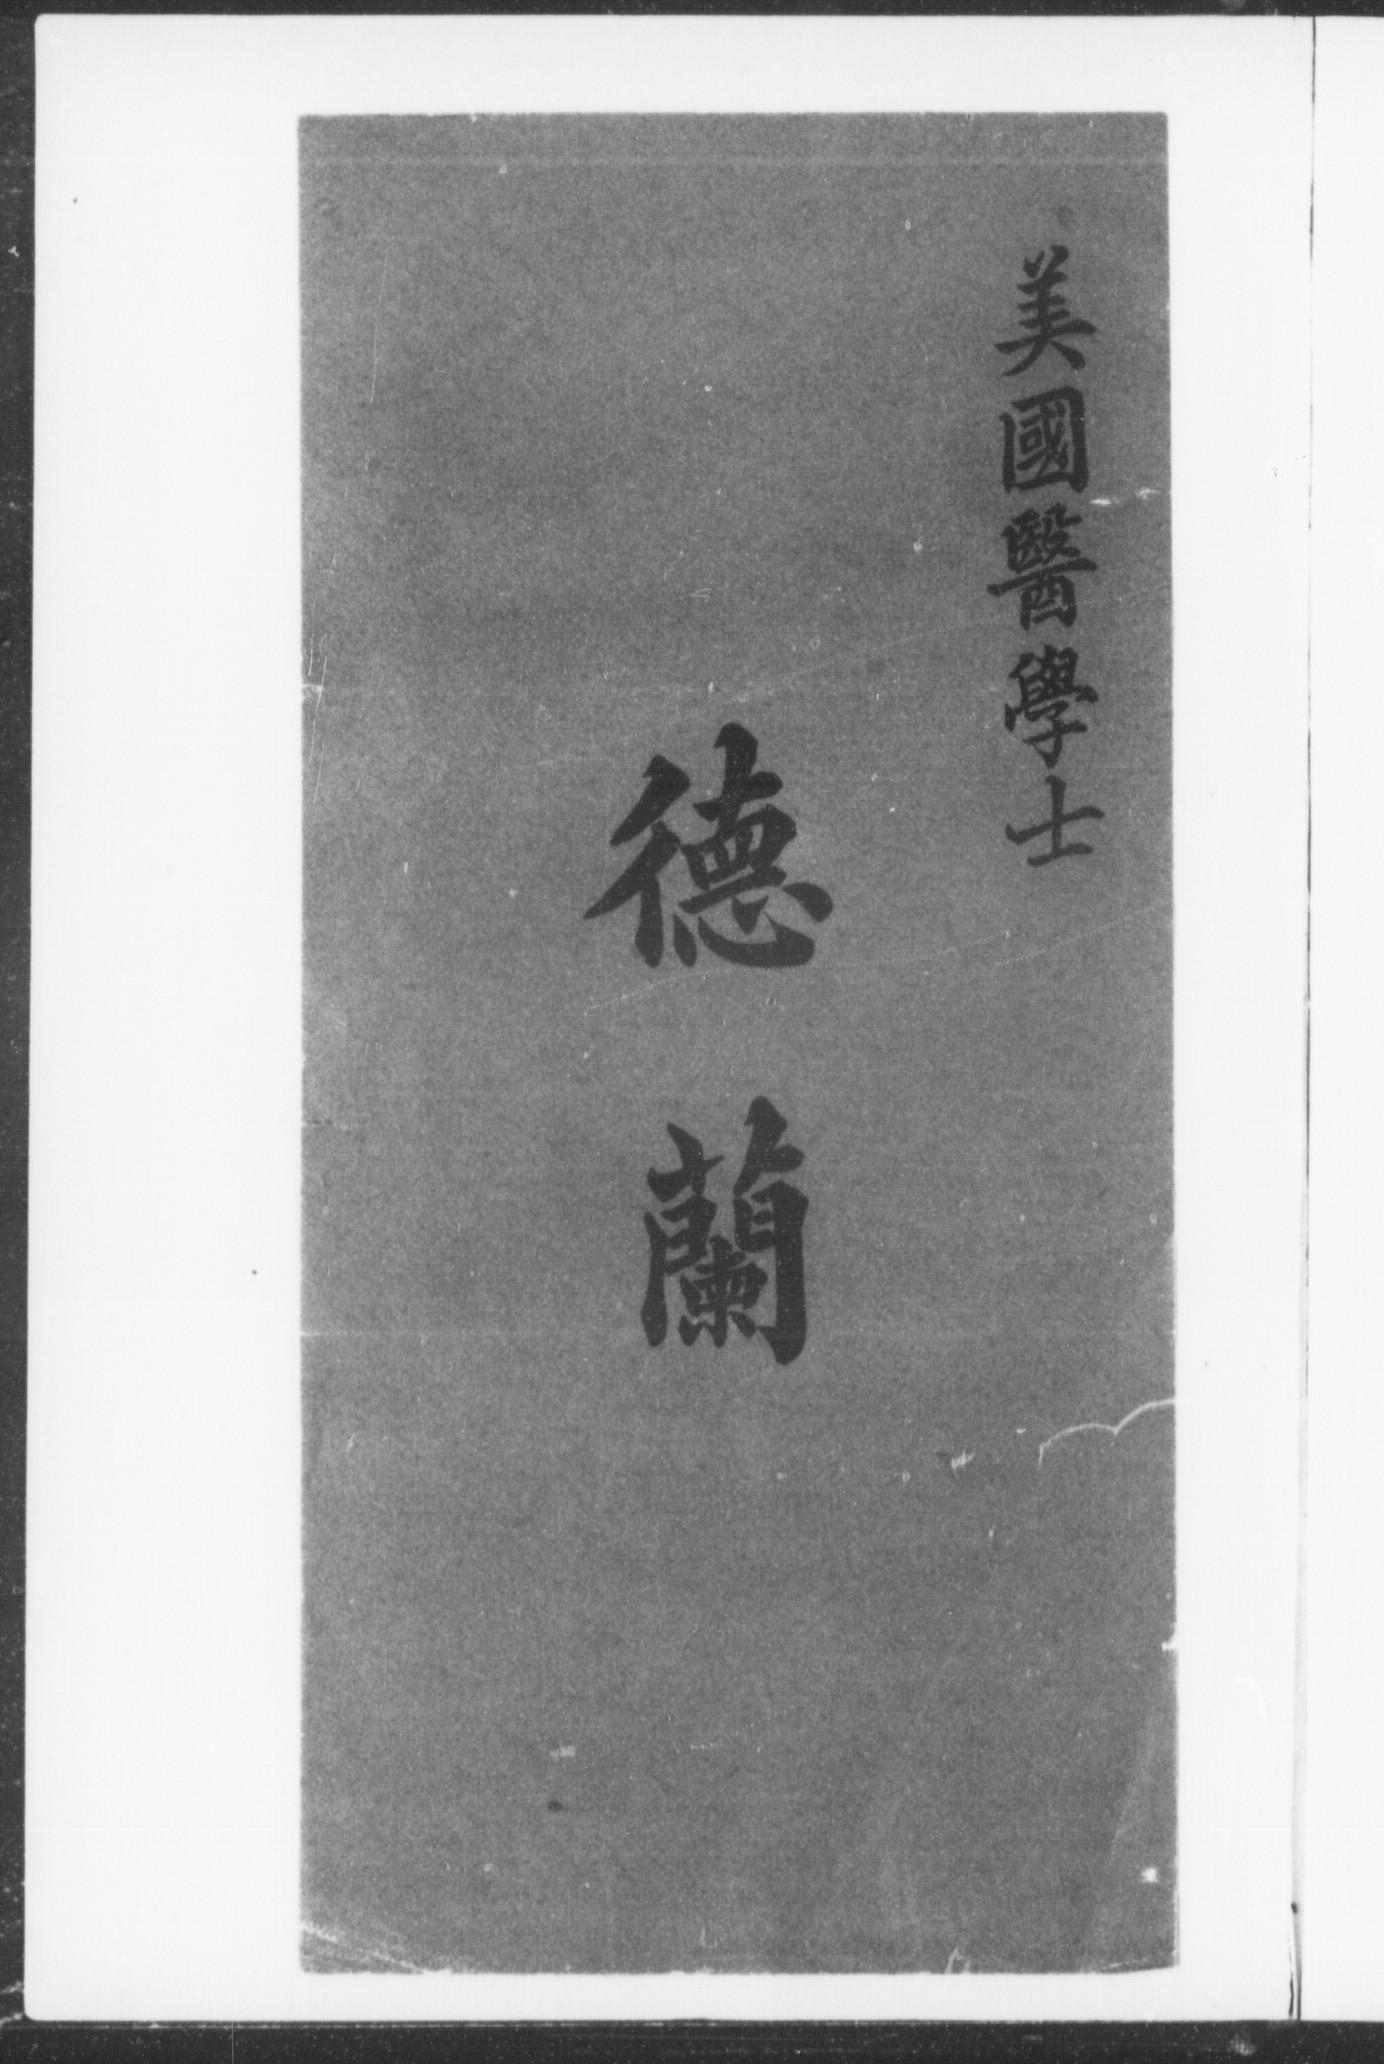 美國醫學士
德蘭